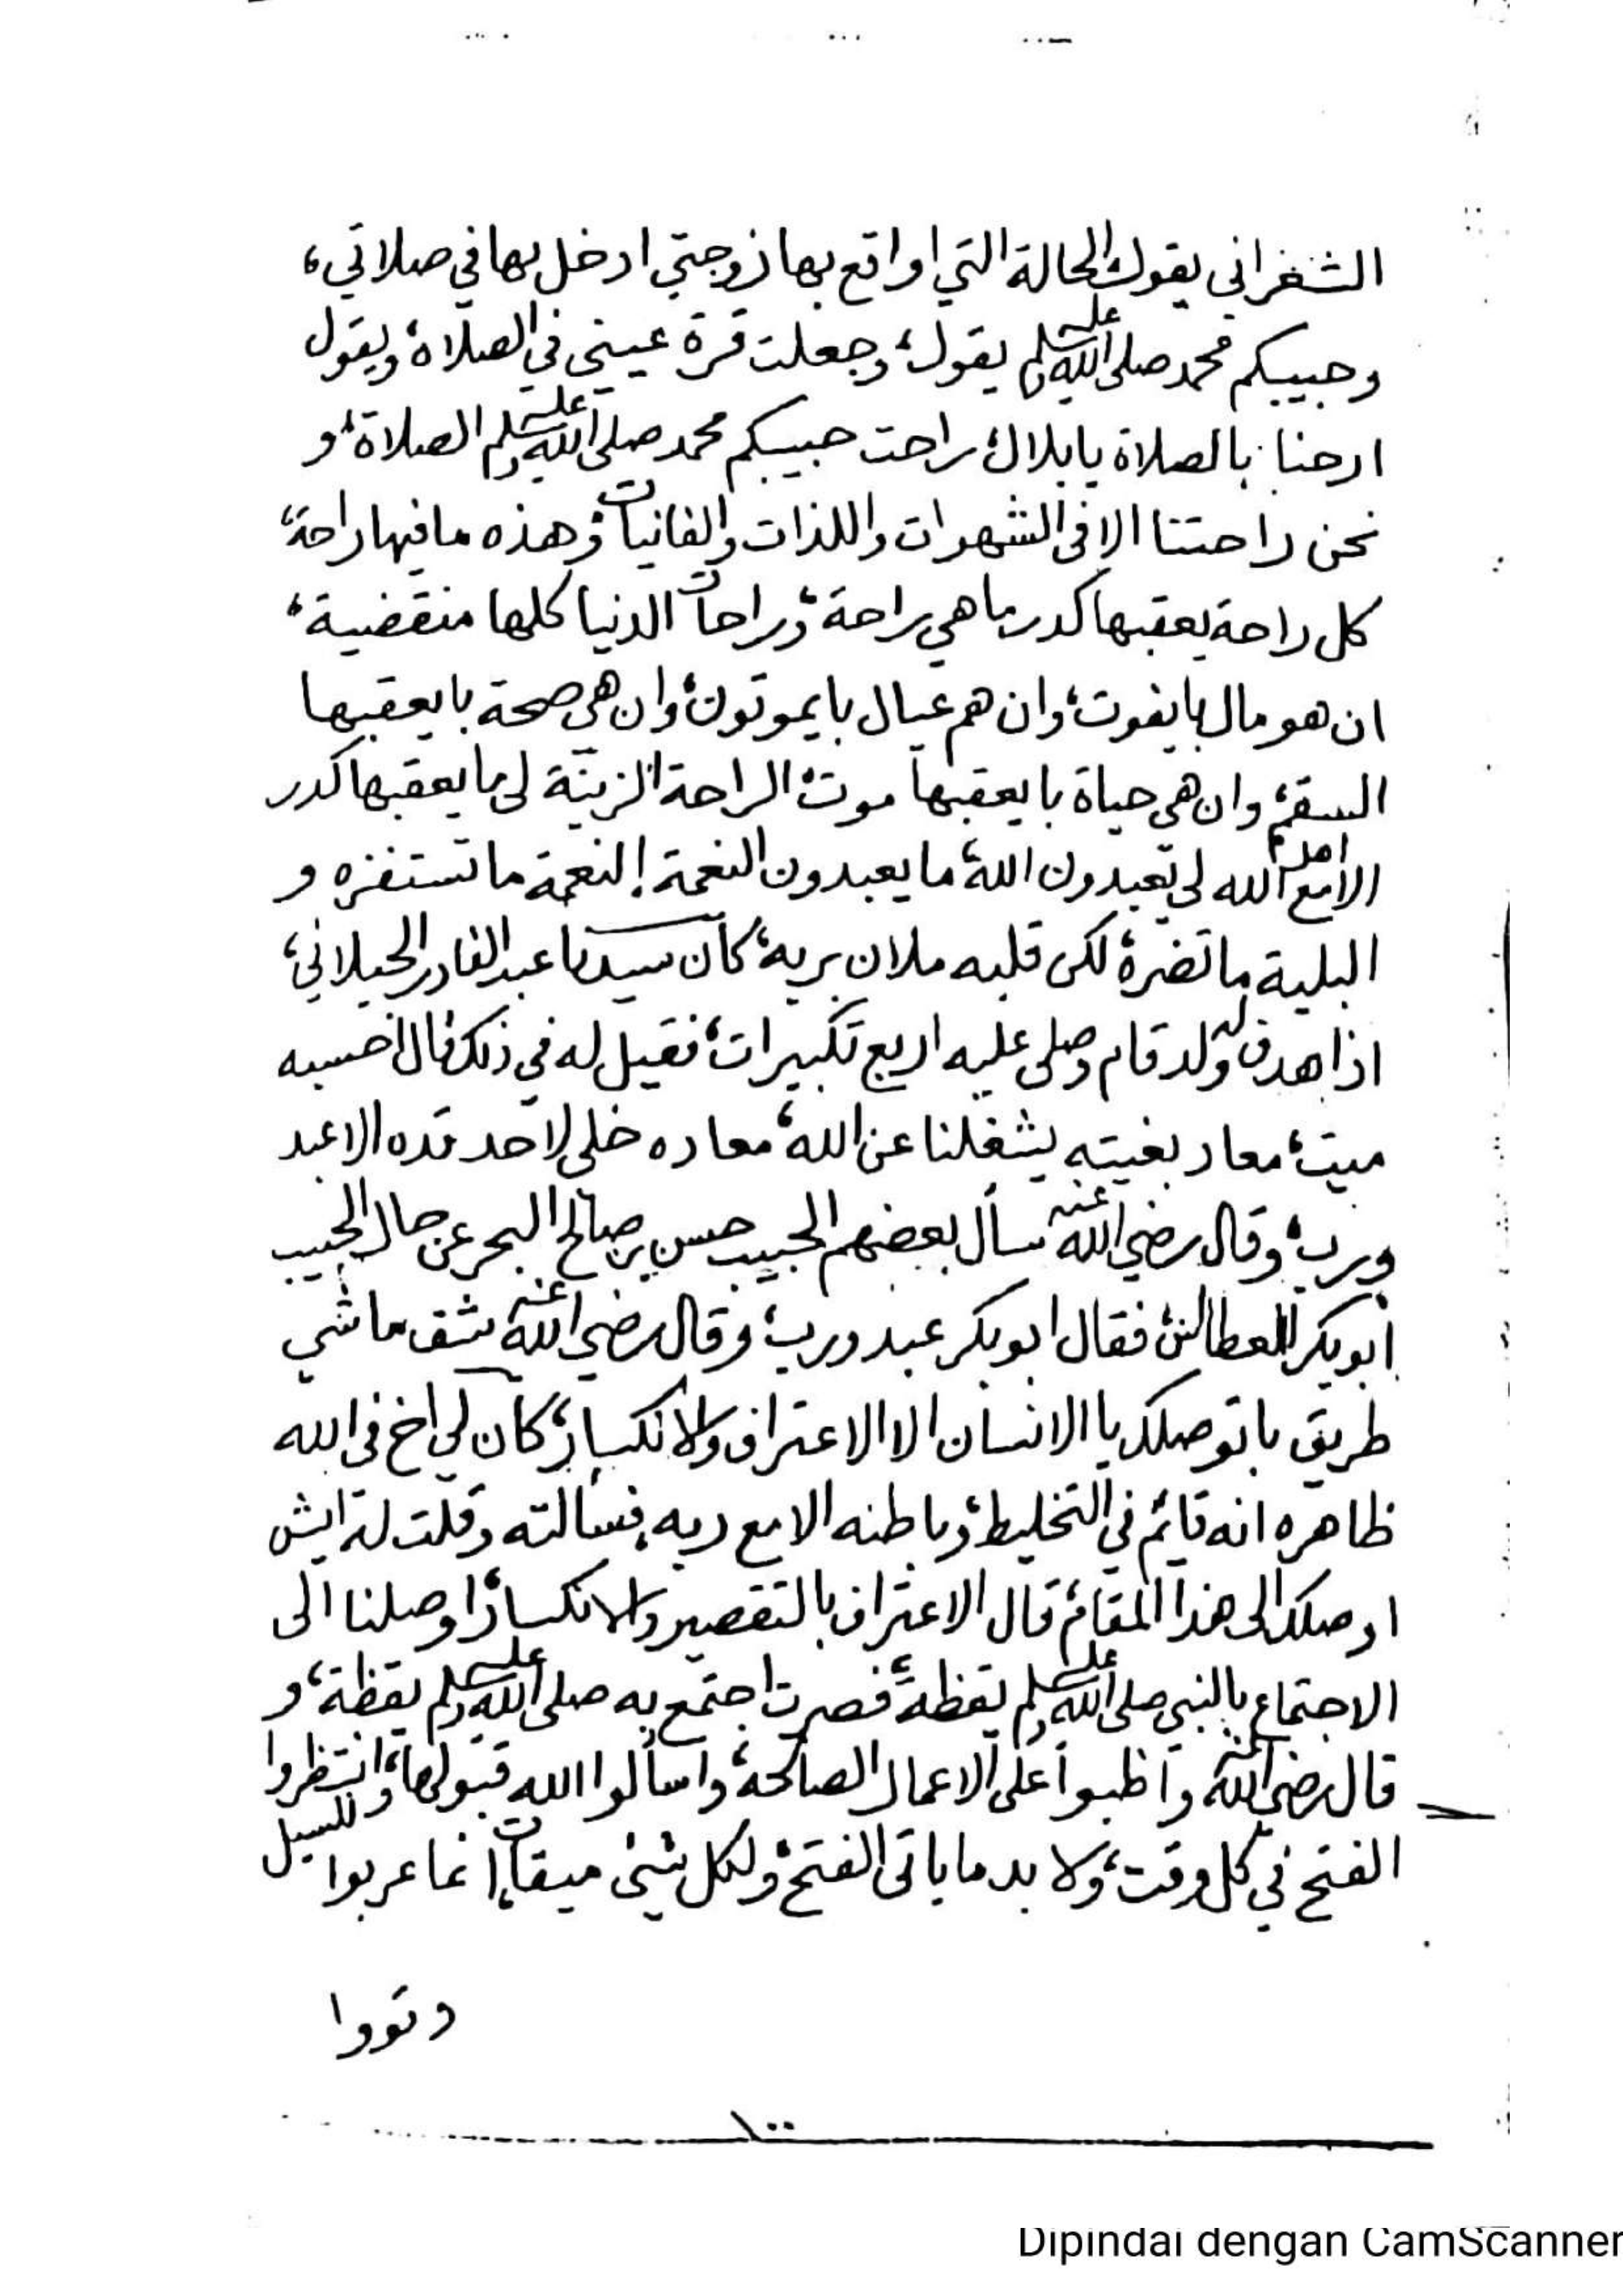 الشغراني يقول، الحالة التي اواقع بها زوجتي ادخل بها في صلاتي،
وحبيبكم محمد صلى الله عليه وسلم يقول، وجعلت قرة عيني في الصلاة، ويقول
ارحنا بالصلاة يا بلال، راحت حبيبكم محمد صلى الله عليه وسلم الصلاة، و
نحن راحتنا الا في الشهوات واللذات والفانيات، وهذه ما فيها راحة،
كل راحة يعقبها كدر ما هي براحة، وراحات الدنيا كلها منقضية،
ان هو مال بايفوت، وان هم عيال بايموتون، وان هي صحة بايعقبها
السقم، وان هي حياة بايعقبها موت، الراحة الزينة لي ما يعقبها كدر
الا مع اهل الله لي يعبدون الله، ما يعبدون النعمة، النعمة ما تستفزه و
البلية ما تضره، لكن قلبه ملان بربه، كان سيدنا عبد القادر الجيلاني،
اذا هدف له ولد قام وصلى عليه اربع تكبيرات، فقيل له في ذلك، قال احسبه
ميت، معاد بغيته يشغلنا عن الله، معاده خلى لاحد قده الا عبد
ورب، وقال رضي الله عنه سأل بعضهم الحبيب حسن بن صالح البحر عن حال الحبيب
أبوبكر العطاس، فقال ابوبكر عبد ورب، وقال رضي الله عنه شف ما شي
طريق باتوصلك يا الانسان الا الاعتراف والانكسار، كان لي اخ في الله
ظاهره انه قائم في التخليط، وباطنه الا مع ربه، فسالته وقلت له ايش
اوصلك الى هذا المقام، قال الاعتراف بالتقصير والانكسار، اوصلنا الى
الاجتماع بالنبي صلى الله عليه وسلم يقظة، فصرت اجتمع به صلى الله عليه وسلم يقظة، و
قال رضي الله عنه واظبوا على الاعمال الصالحة، واسألوا الله قبولها، وانتظروا
الفتح في كل وقت، ولا بد ما ياتى الفتح، ولكل شيئ ميقات، انما عربوا للسيل
وتووا
١٠٠
Dipindai dengan CamScanner